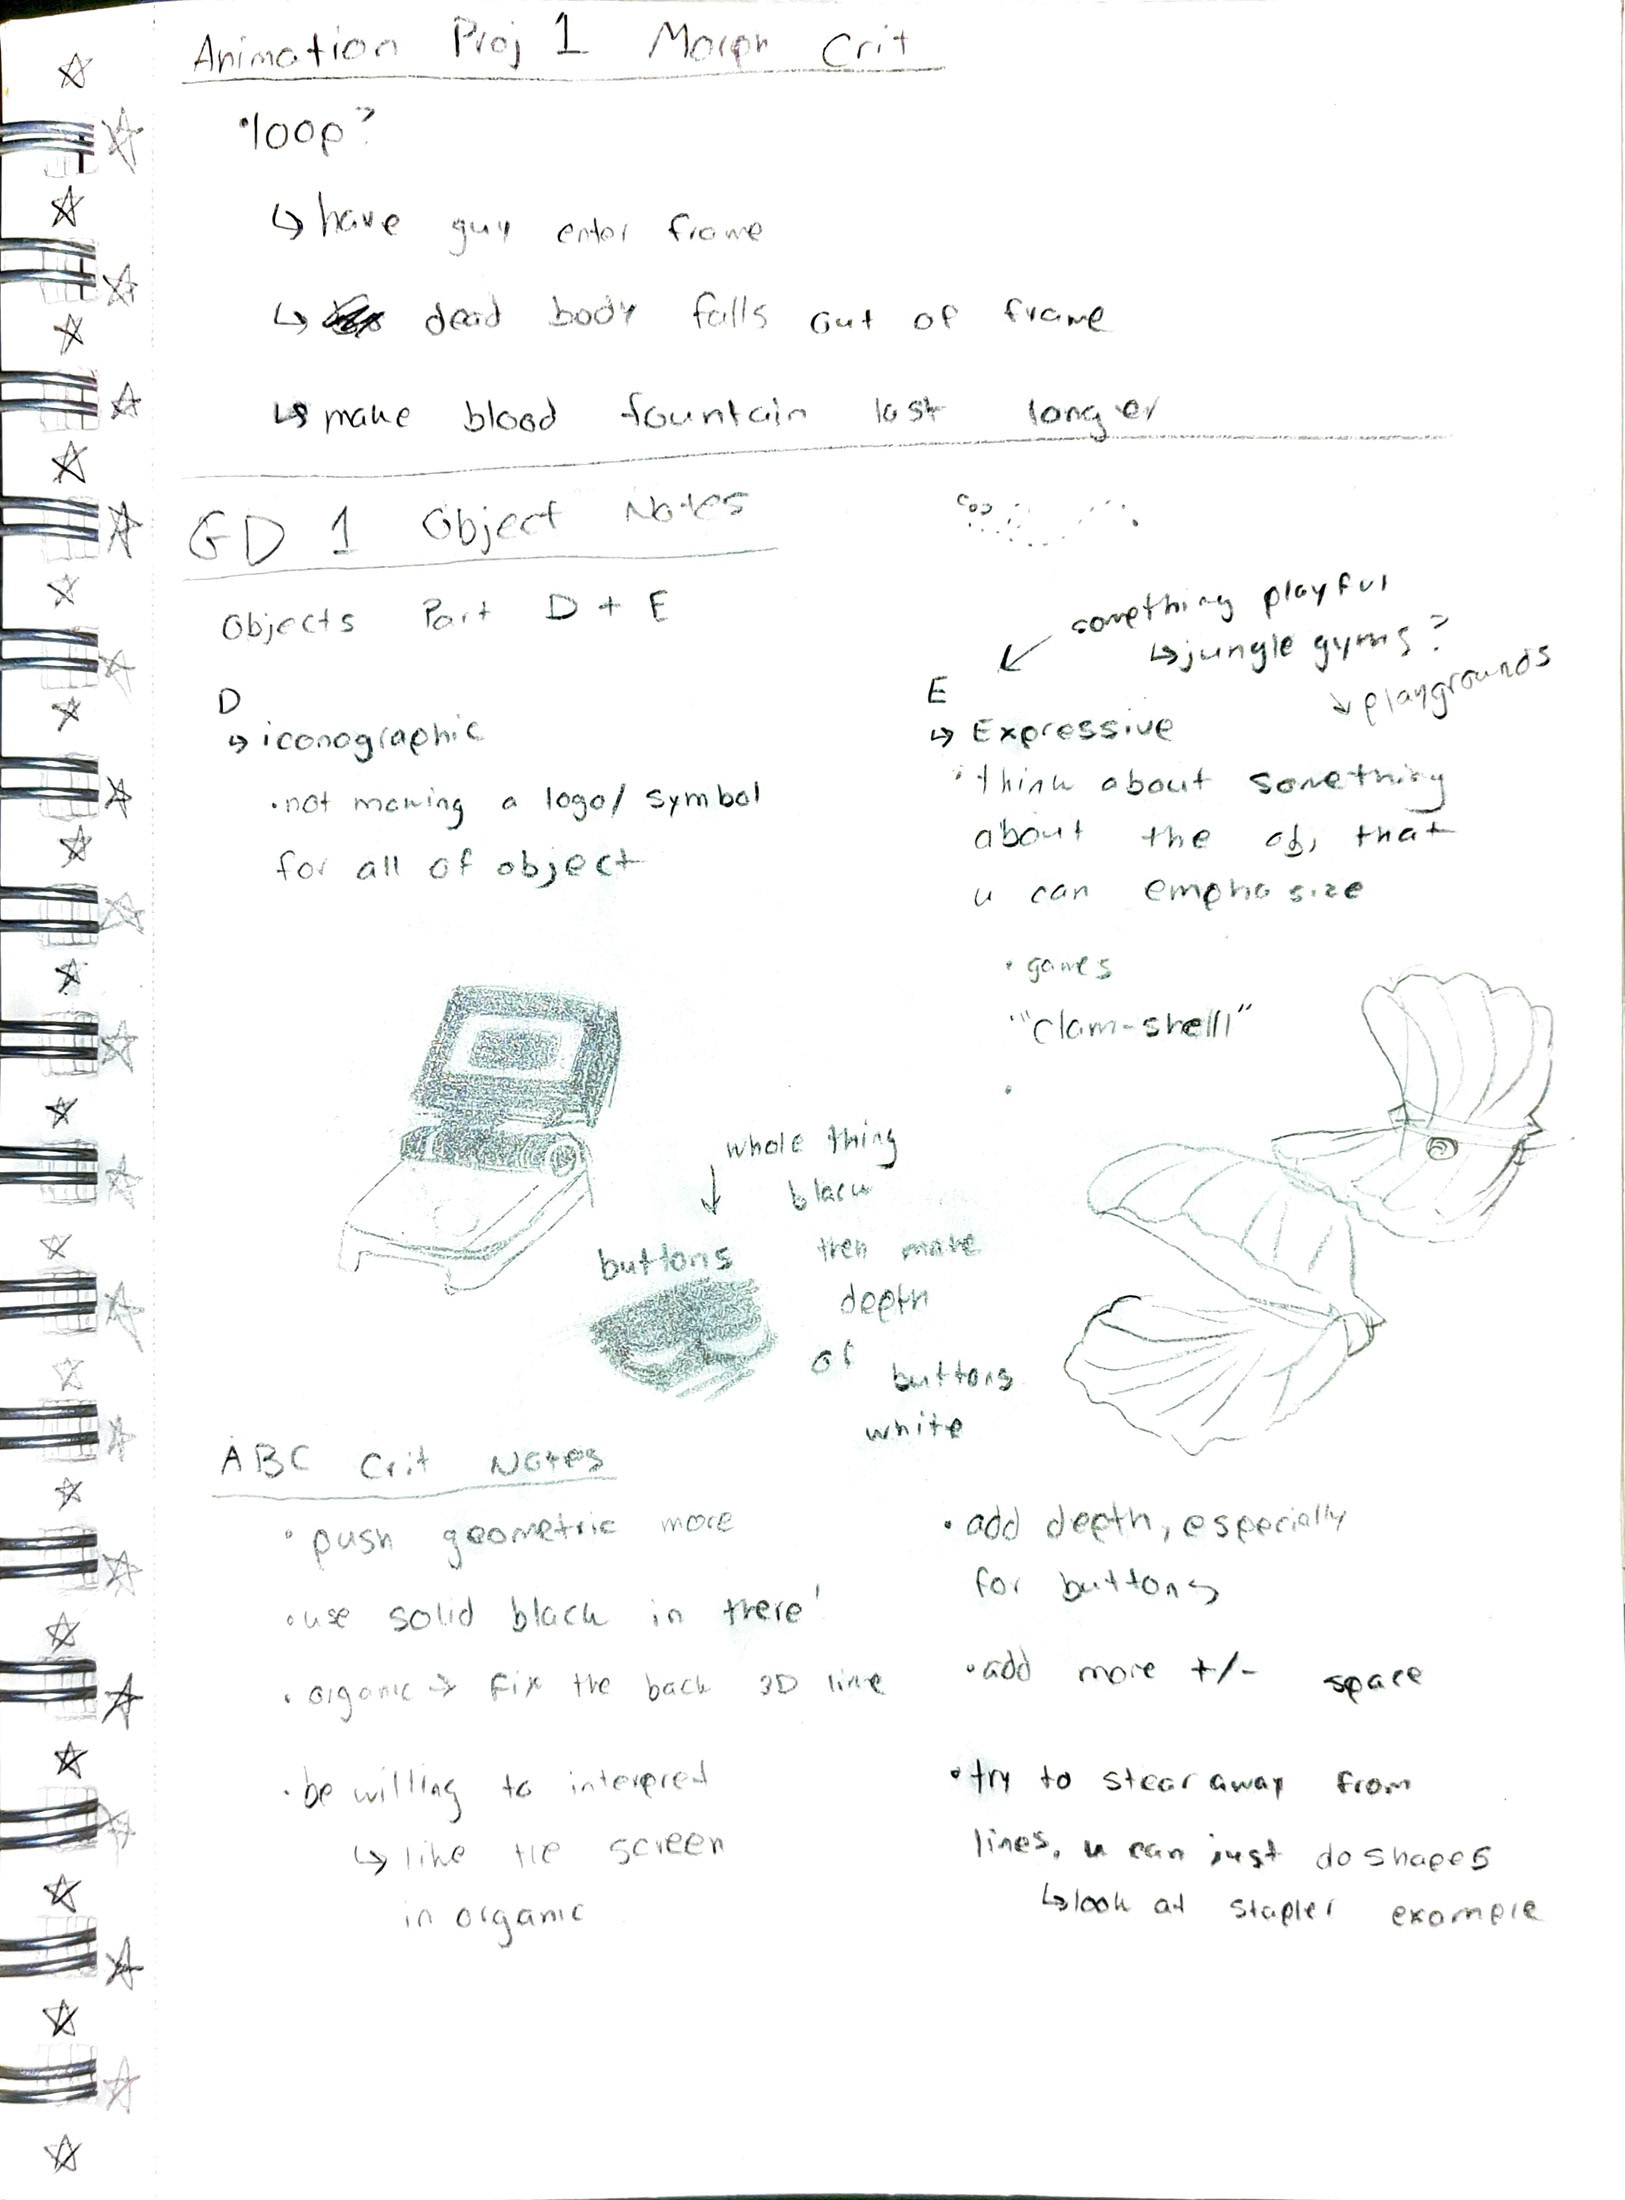 Animation Proj 1 Morph Crit
• loop?
↳ have guy enter frame
↳ dead body falls out of frame
↳ make blood fountain last longer
GD 1 Object Notes
Objects Part D + E
D
↳ iconographic
• not making a logo/symbol
for all of object
something playful
↳ jungle gyms?
↘ playgrounds
E
↳ Expressive
• think about something
about the obj that
u can emphasize
• games
• "clam-shell"
•
whole thing
black
then make
depth
of
buttons
white
buttons
ABC Crit Notes
• push geometric more
• use solid black in there!
• organic → fix the back 3D line
• be willing to interpret
↳ like the screen
in organic
• add depth, especially
for buttons
• add more +/- space
• try to stear away from
lines, u can just do shapes
↳ look at stapler example